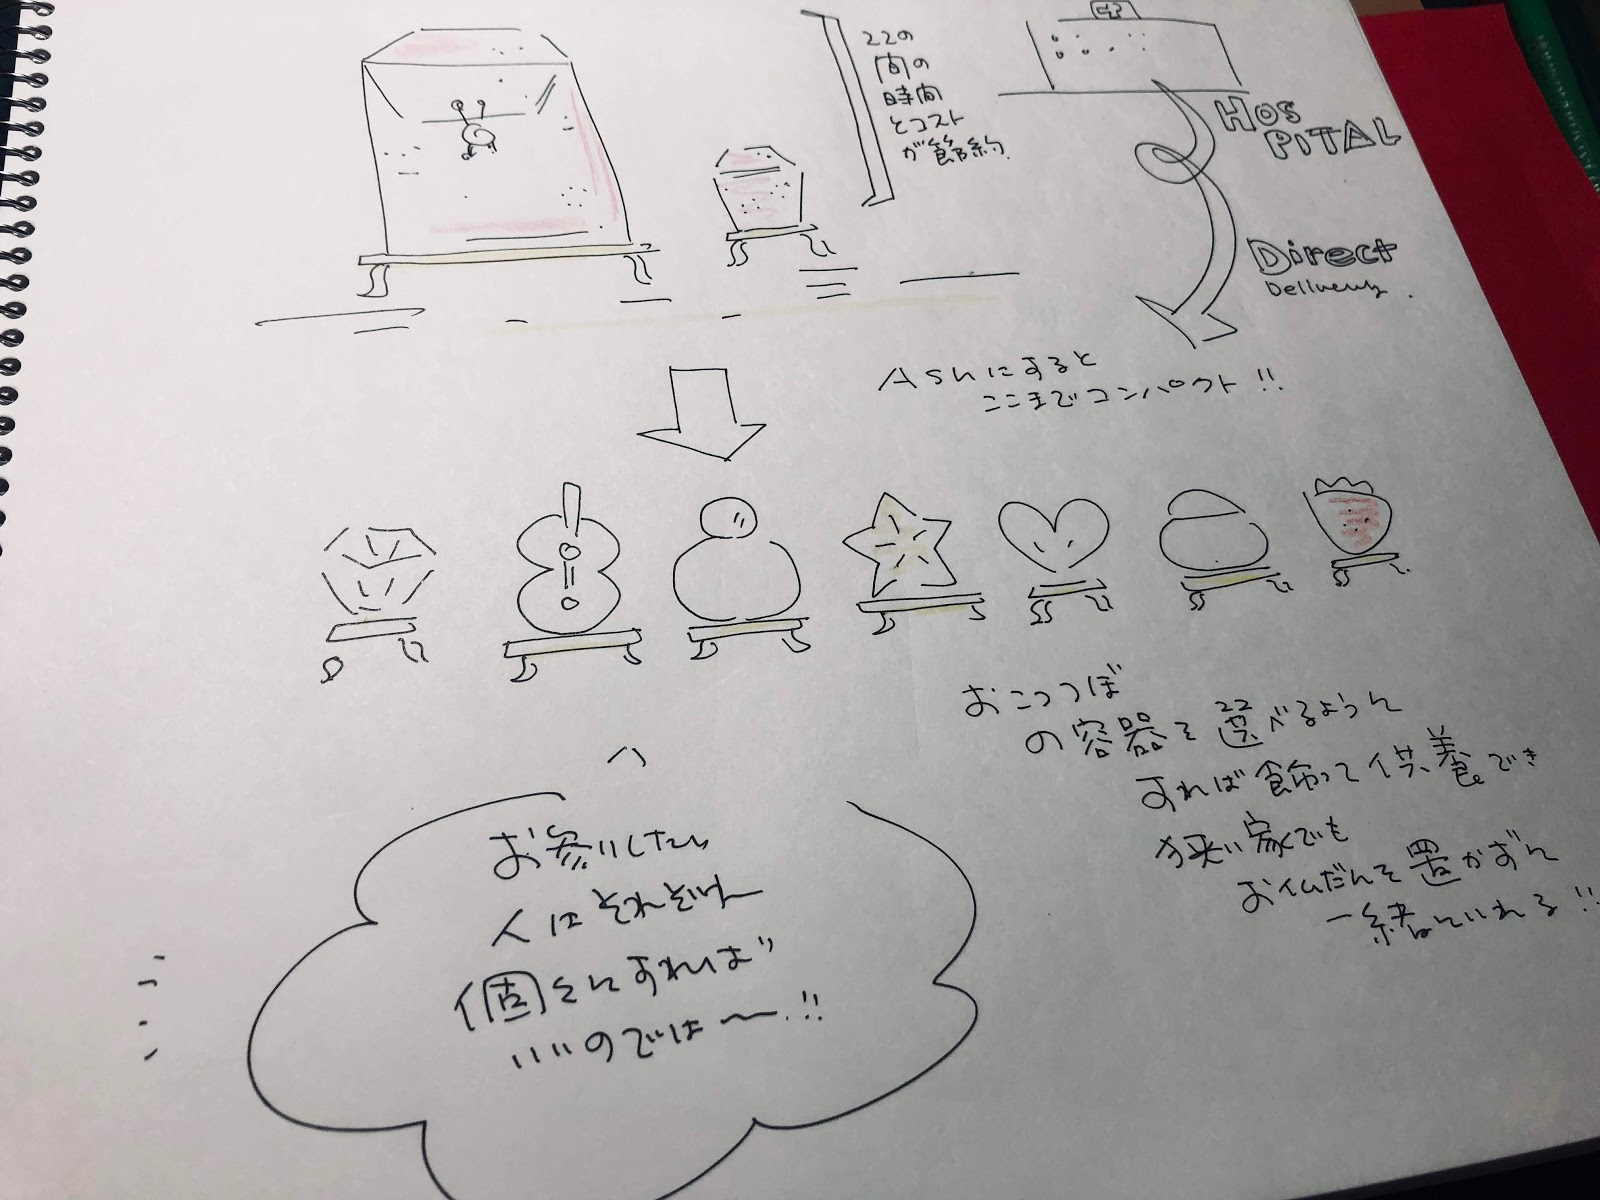 ココの
間の
時間
とコスト
が節約.
HOS
PITAL
Direct
Delivery.
Ashにすると
ここまでコンパクト!!
おこつつぼ
の容器を選べるように
すれば飾って供養でき
狭い家でも
お仏だんを置かずに
一緒にいれる!!
お参りしたい
人はそれぞれ
個々にすれば
いいのでは〜!!